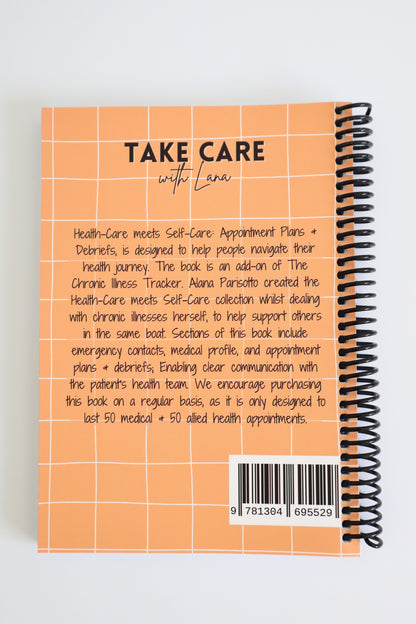 TAKE CARE
with Lana
Health-Care meets Self-Care: Appointment Plans &
Debriefs, is designed to help people navigate their
health journey. The book is an add-on of The
Chronic Illness Tracker. Alana Parisotto created the
Health-Care meets Self-Care collection whilst dealing
with chronic illnesses herself, to help support others
in the same boat. Sections of this book include
emergency contacts, medical profile, and appointment
plans & debriefs; Enabling clear communication with
the patient's health team. We encourage purchasing
this book on a regular basis, as it is only designed to
last 50 medical & 50 allied health appointments.
9 781304 695529